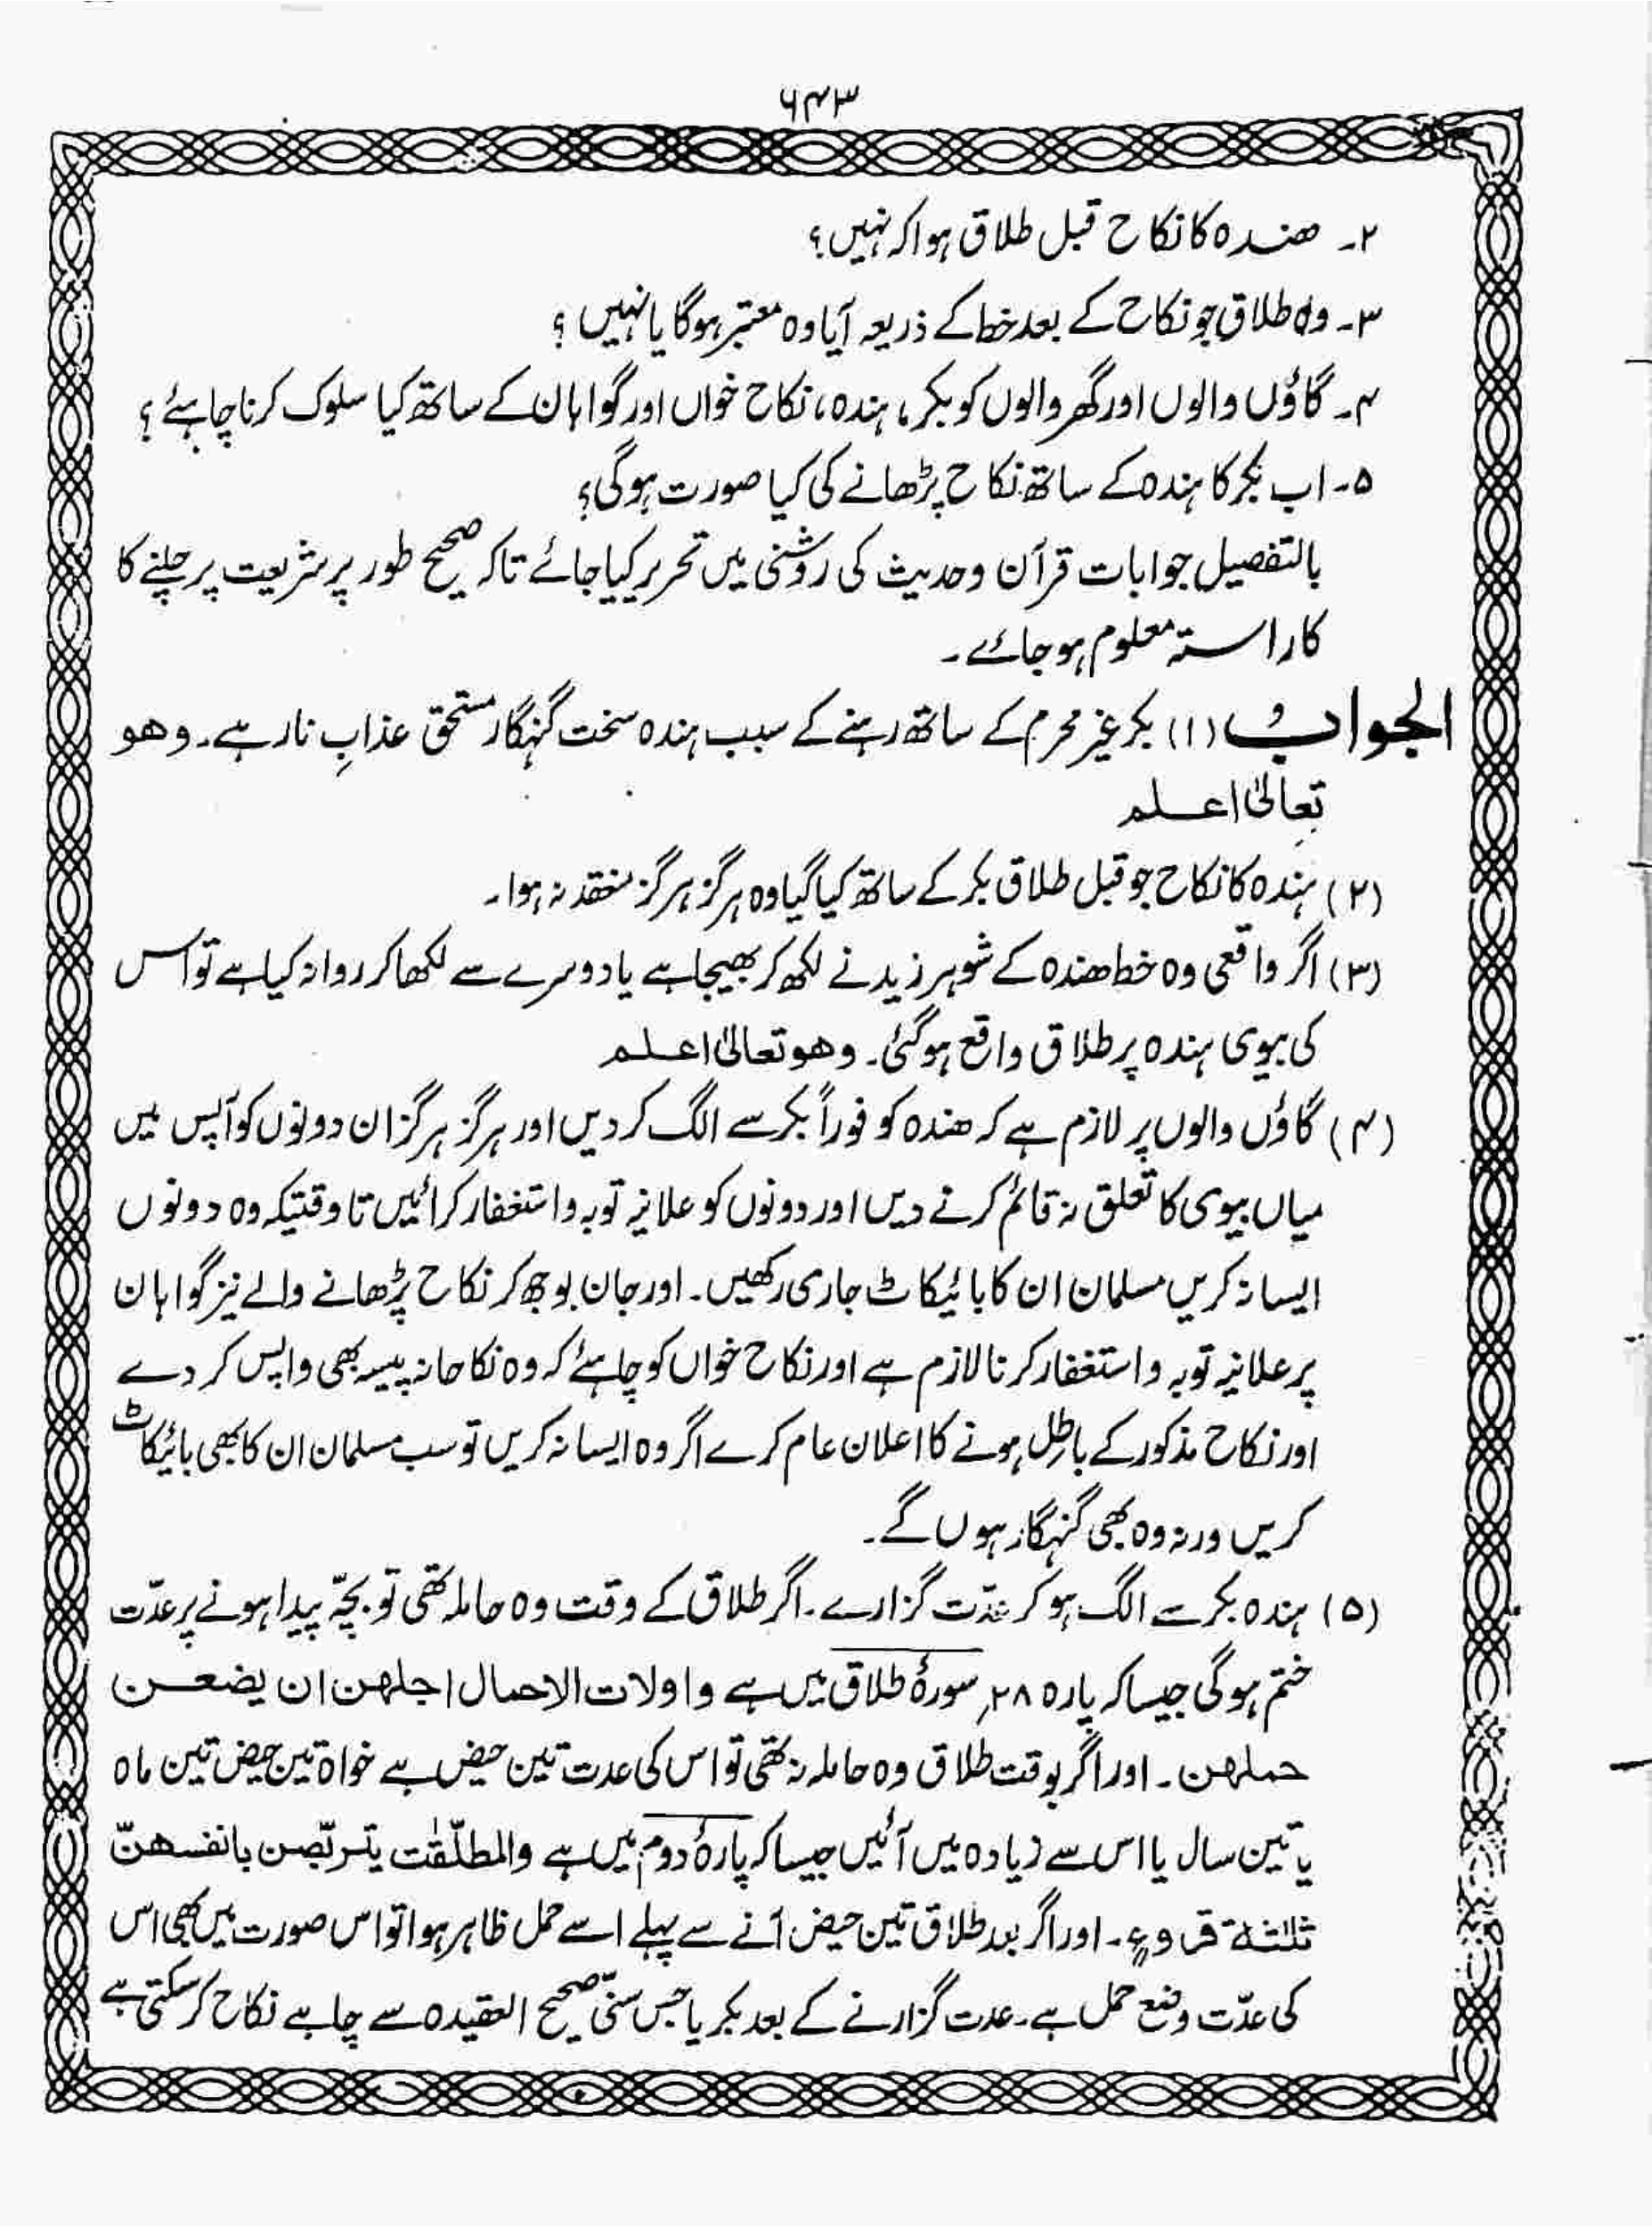 ۶۴۳
۲۔ ھندہ کا نکاح قبل طلاق ہوا کہ نہیں؟
۳۔ وہ طلاق جو نکاح کے بعد خط کے ذریعہ آیا وہ معتبر ہوگا یا نہیں؟
۴۔ گاؤں والوں اور گھر والوں کو بکر، ہندہ، نکاح خواں اور گواہان کے ساتھ کیا سلوک کرنا چاہئے؟
۵۔ اب بکر کا ہندہ کے ساتھ نکاح پڑھانے کی کیا صورت ہوگی؟
بالتفصیل جوابات قرآن و حدیث کی روشنی میں تحریر کیا جائے تاکہ صحیح طور پر شریعت پر چلنے کا
کا راستہ معلوم ہو جائے۔
الجواب (۱) بکر غیر محرم کے ساتھ رہنے کے سبب ہندہ سخت گنہگار مستحق عذابِ نار ہے۔ وھو
تعالیٰ اعلم
(۲) ہندہ کا نکاح جو قبل طلاق بکر کے ساتھ کیا گیا وہ ہرگز ہرگز منعقد نہ ہوا۔
(۳) اگر واقعی وہ خط ھندہ کے شوہر زید نے لکھ کر بھیجا ہے یا دوسرے سے لکھا کر روانہ کیا ہے تو اس
کی بیوی ہندہ پر طلاق واقع ہوگئی۔ وھو تعالیٰ اعلم
(۴) گاؤں والوں پر لازم ہے کہ ھندہ کو فوراً بکر سے الگ کر دیں اور ہرگز ہرگز ان دونوں کو آپس میں
میاں بیوی کا تعلق نہ قائم کرنے دیں اور دونوں کو علانیہ توبہ و استغفار کرائیں تا وقتیکہ وہ دونوں
ایسا نہ کریں مسلمان ان کا بائیکاٹ جاری رکھیں۔ اور جان بوجھ کر نکاح پڑھانے والے نیز گواہان
پر علانیہ توبہ و استغفار کرنا لازم ہے اور نکاح خواں کو چاہئے کہ وہ نکاحانہ پیسہ بھی واپس کر دے
اور نکاح مذکور کے باطل ہونے کا اعلان عام کرے اگر وہ ایسا نہ کریں تو سب مسلمان ان کا بھی بائیکاٹ
کریں ورنہ وہ بھی گنہگار ہوں گے۔
(۵) ہندہ بکر سے الگ ہو کر عدّت گزارے۔ اگر طلاق کے وقت وہ حاملہ تھی تو بچّہ پیدا ہونے پر عدّت
ختم ہوگی جیسا کہ پارہ ۲۸ سورۂ طلاق میں ہے واولات الاحمال اجلھن ان یضعن
حملھن۔ اور اگر بوقت طلاق وہ حاملہ نہ تھی تو اس کی عدت تین حیض ہے خواہ تین حیض تین ماہ
یا تین سال یا اس سے زیادہ میں آئیں جیسا کہ پارۂ دوم میں ہے والمطلّقٰت یتربّصن بانفسھنّ
ثلٰثۃ قروءٍ۔ اور اگر بعد طلاق تین حیض آنے سے پہلے اسے حمل ظاہر ہوا تو اس صورت میں بھی اس
کی عدّت وضع حمل ہے۔ عدت گزارنے کے بعد بکر یا جس سنّی صحیح العقیدہ سے چاہے نکاح کر سکتی ہے